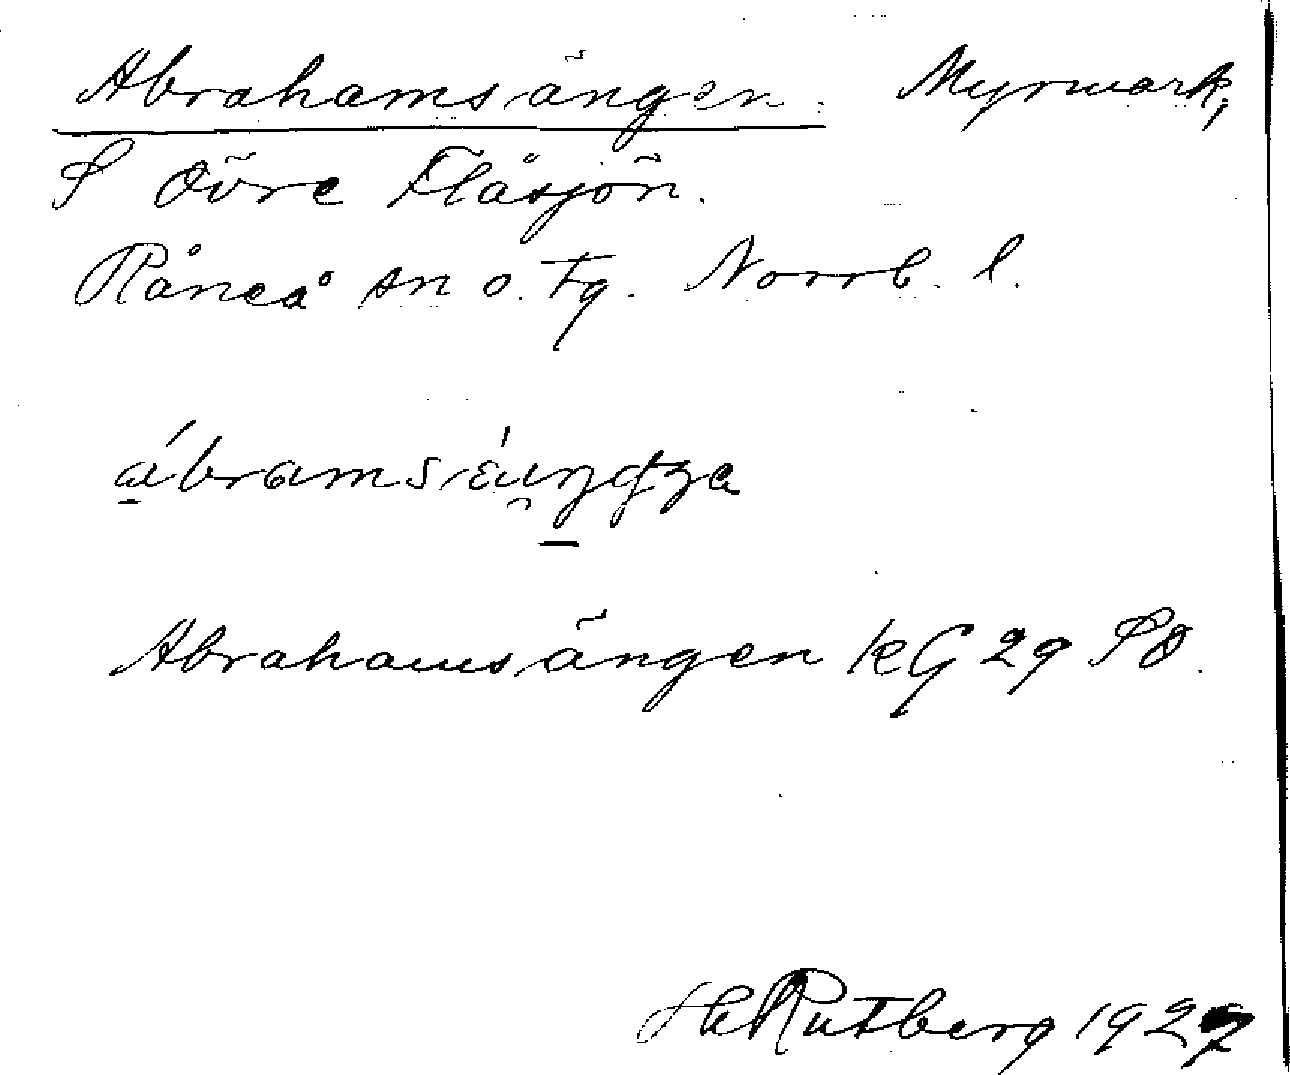 Abrahamsängen. Myrmark,
S Övre Flåsjön.
Råneå sn o. tg. Norrb. l.
Abrahamsängen kG 29 SO.
H Rutberg